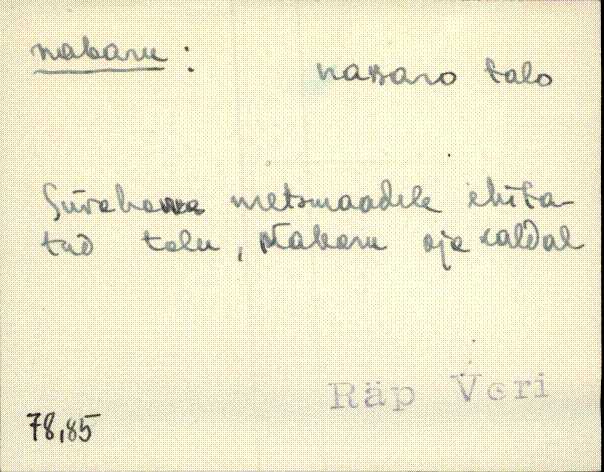 nabaru :
nabaro talo
metsmaadele ehita-
tud talu, Nabaru oja kaldal
Räp Veri
78,85